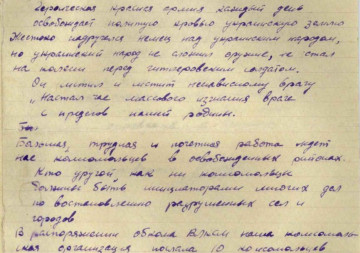 Героическая красная армия каждый день
освобождает политую кровью украинскую землю
Жестоко надругался немец над украинским народом,
но украинский народ не сложил оружие, не стал
на колени перед гитлеровским солдатом.
Он мстил и мстит ненависному врагу
Настал час массового изгнания врага
с пределов нашей родины.
Большая, трудная и почетная работа ждет
нас комсомольцев в освобожденных районах.
Кто другой, как ни комсомольцы
должны быть инициаторами многих дел
по востановлению разрушенных сел и
городов
В распоряжении обкома наша комсомоль-
ская организация послала 10 комсомольцев